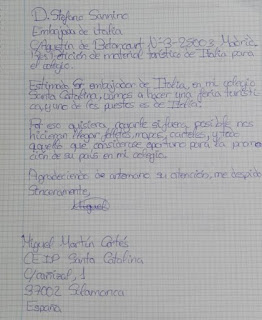 D. Stefano Sannino
Embajada de Italia
C/Agustín de Betancourt Nº3-28003 Madrid.
petición de material turístico de Italia para
el colegio.
Estimado Sr. embajador de Italia, en mi colegio
Santa Catalina, vamos a hacer una feria turísti-
ca, y uno de los puestos es de Italia.
Por eso quisiera rogarle si fuera posible nos
hicieran llegar folletos, mapas, carteles, y todo
aquello que considerase oportuno para la promo-
ción de su país en mi colegio.
Agradeciendo de antemano su atención, me despido
Sinceramente,
Miguel
Miguel Martín Cortés
CEIP Santa Catalina
C/arrizal, 1
37002 Salamanca
España